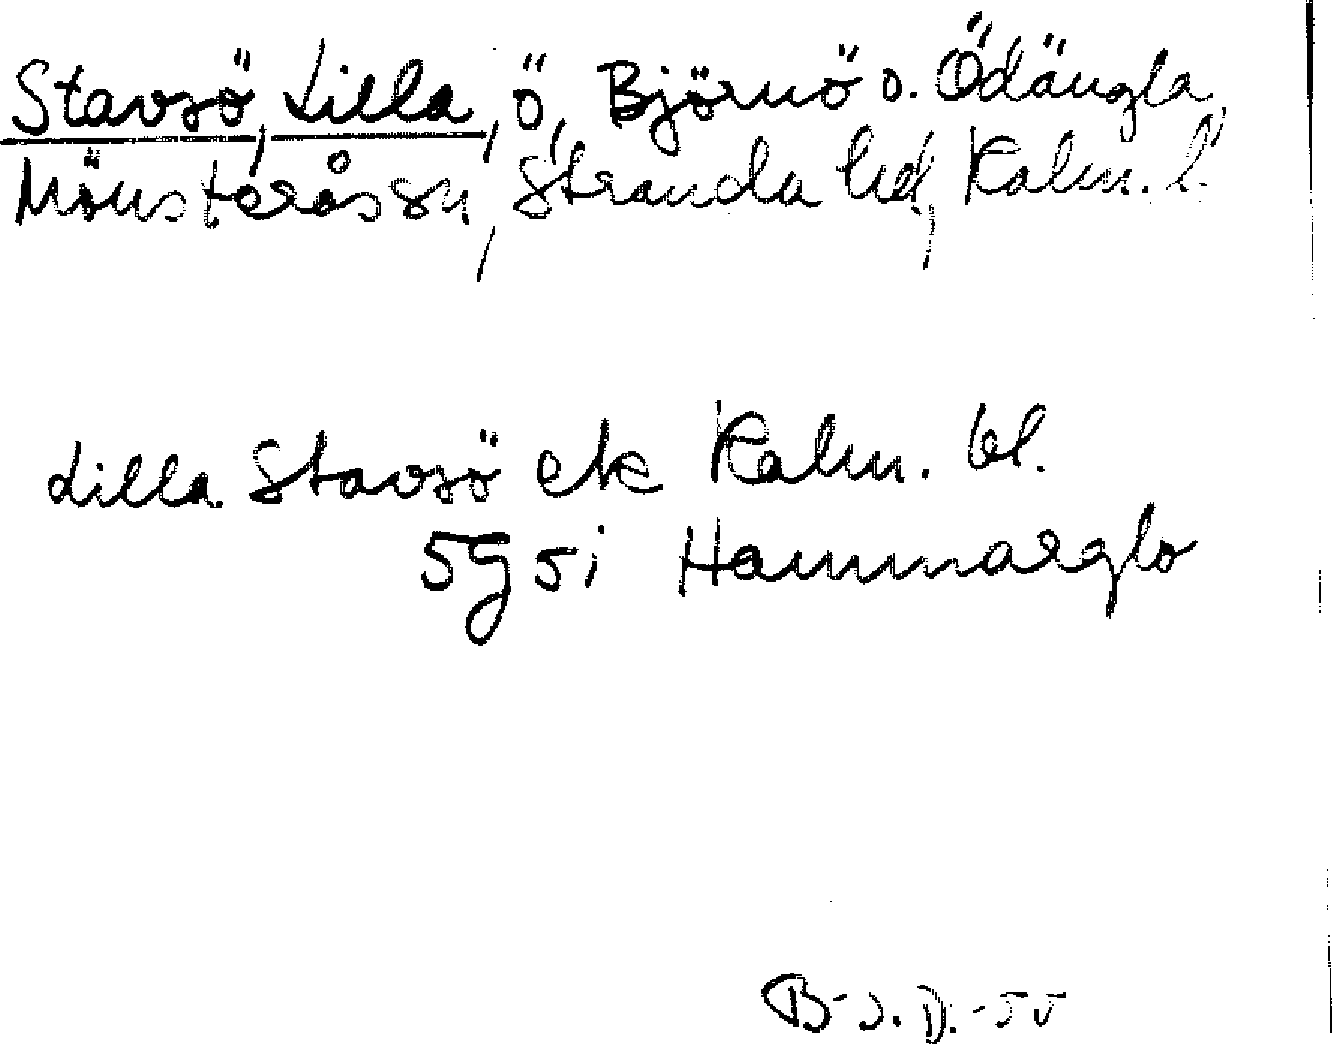 Stavsö, Lilla, ö, Björnö o. Ödängla,
Mönsterås sn, Stranda hd, Kalm. l.
Lilla Stavsö ek Kalm. bl.
5g5i Hammarglo
B-s. D.-55